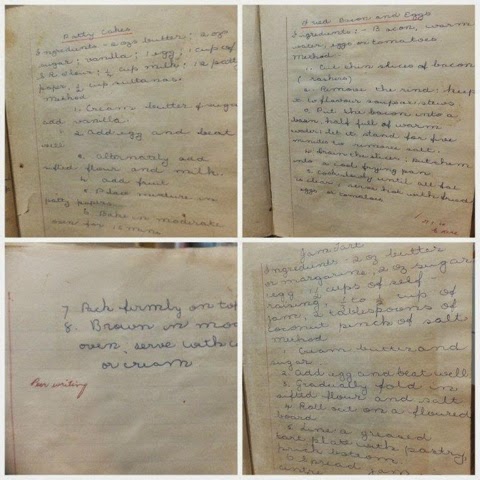 Patty Cakes
Ingredients - 2 ozs butter; 2 ozs
sugar; vanilla; 1 egg; 1 cup of
S.R. flour; ¼ cup milk; 12 patty
paper, ½ cup sultanas
Method
1. Cream butter & sugar
add vanilla.
2. Add egg and beat
well
3. Alternately add
sifted flour and milk.
4. add fruit
5. Place mixture in
patty papers
6. Bake in moderate
oven for 15 mins
Fried Bacon and Eggs
Ingredients:- Bacon, warm
water, eggs or tomatoes
Method
1. Cut thin slices of bacon
(rashers)
2. Remove the rind: keep
it to flavour soups or stews
3. Put the bacon into a
basin half full of warm
water: let it stand for five
minutes to remove salt.
4. Drain the slices: put them
into a cool frying pan
5. Cook slowly until all fat
is clear, serve hot with fried
eggs or tomatoes
7. Rub firmly on top
8. Brown in mod
oven, serve with c
or cream
Poor writing
Jam Tart
Ingredients - 2 oz butter
or margarine, 2 oz sugar
1 egg, 1½ cups of self
raising, ¼ to ½ cup of
jam, 2 tablespoons of
coconut pinch of salt
method
1. Cream butter and
sugar
2. Add egg and beat well
3. Gradually fold in
sifted flour and salt
4. Roll out on a floured
board
5. Line a greased
tart plate with pastry,
prick bottom.
6. Spread jam
centre